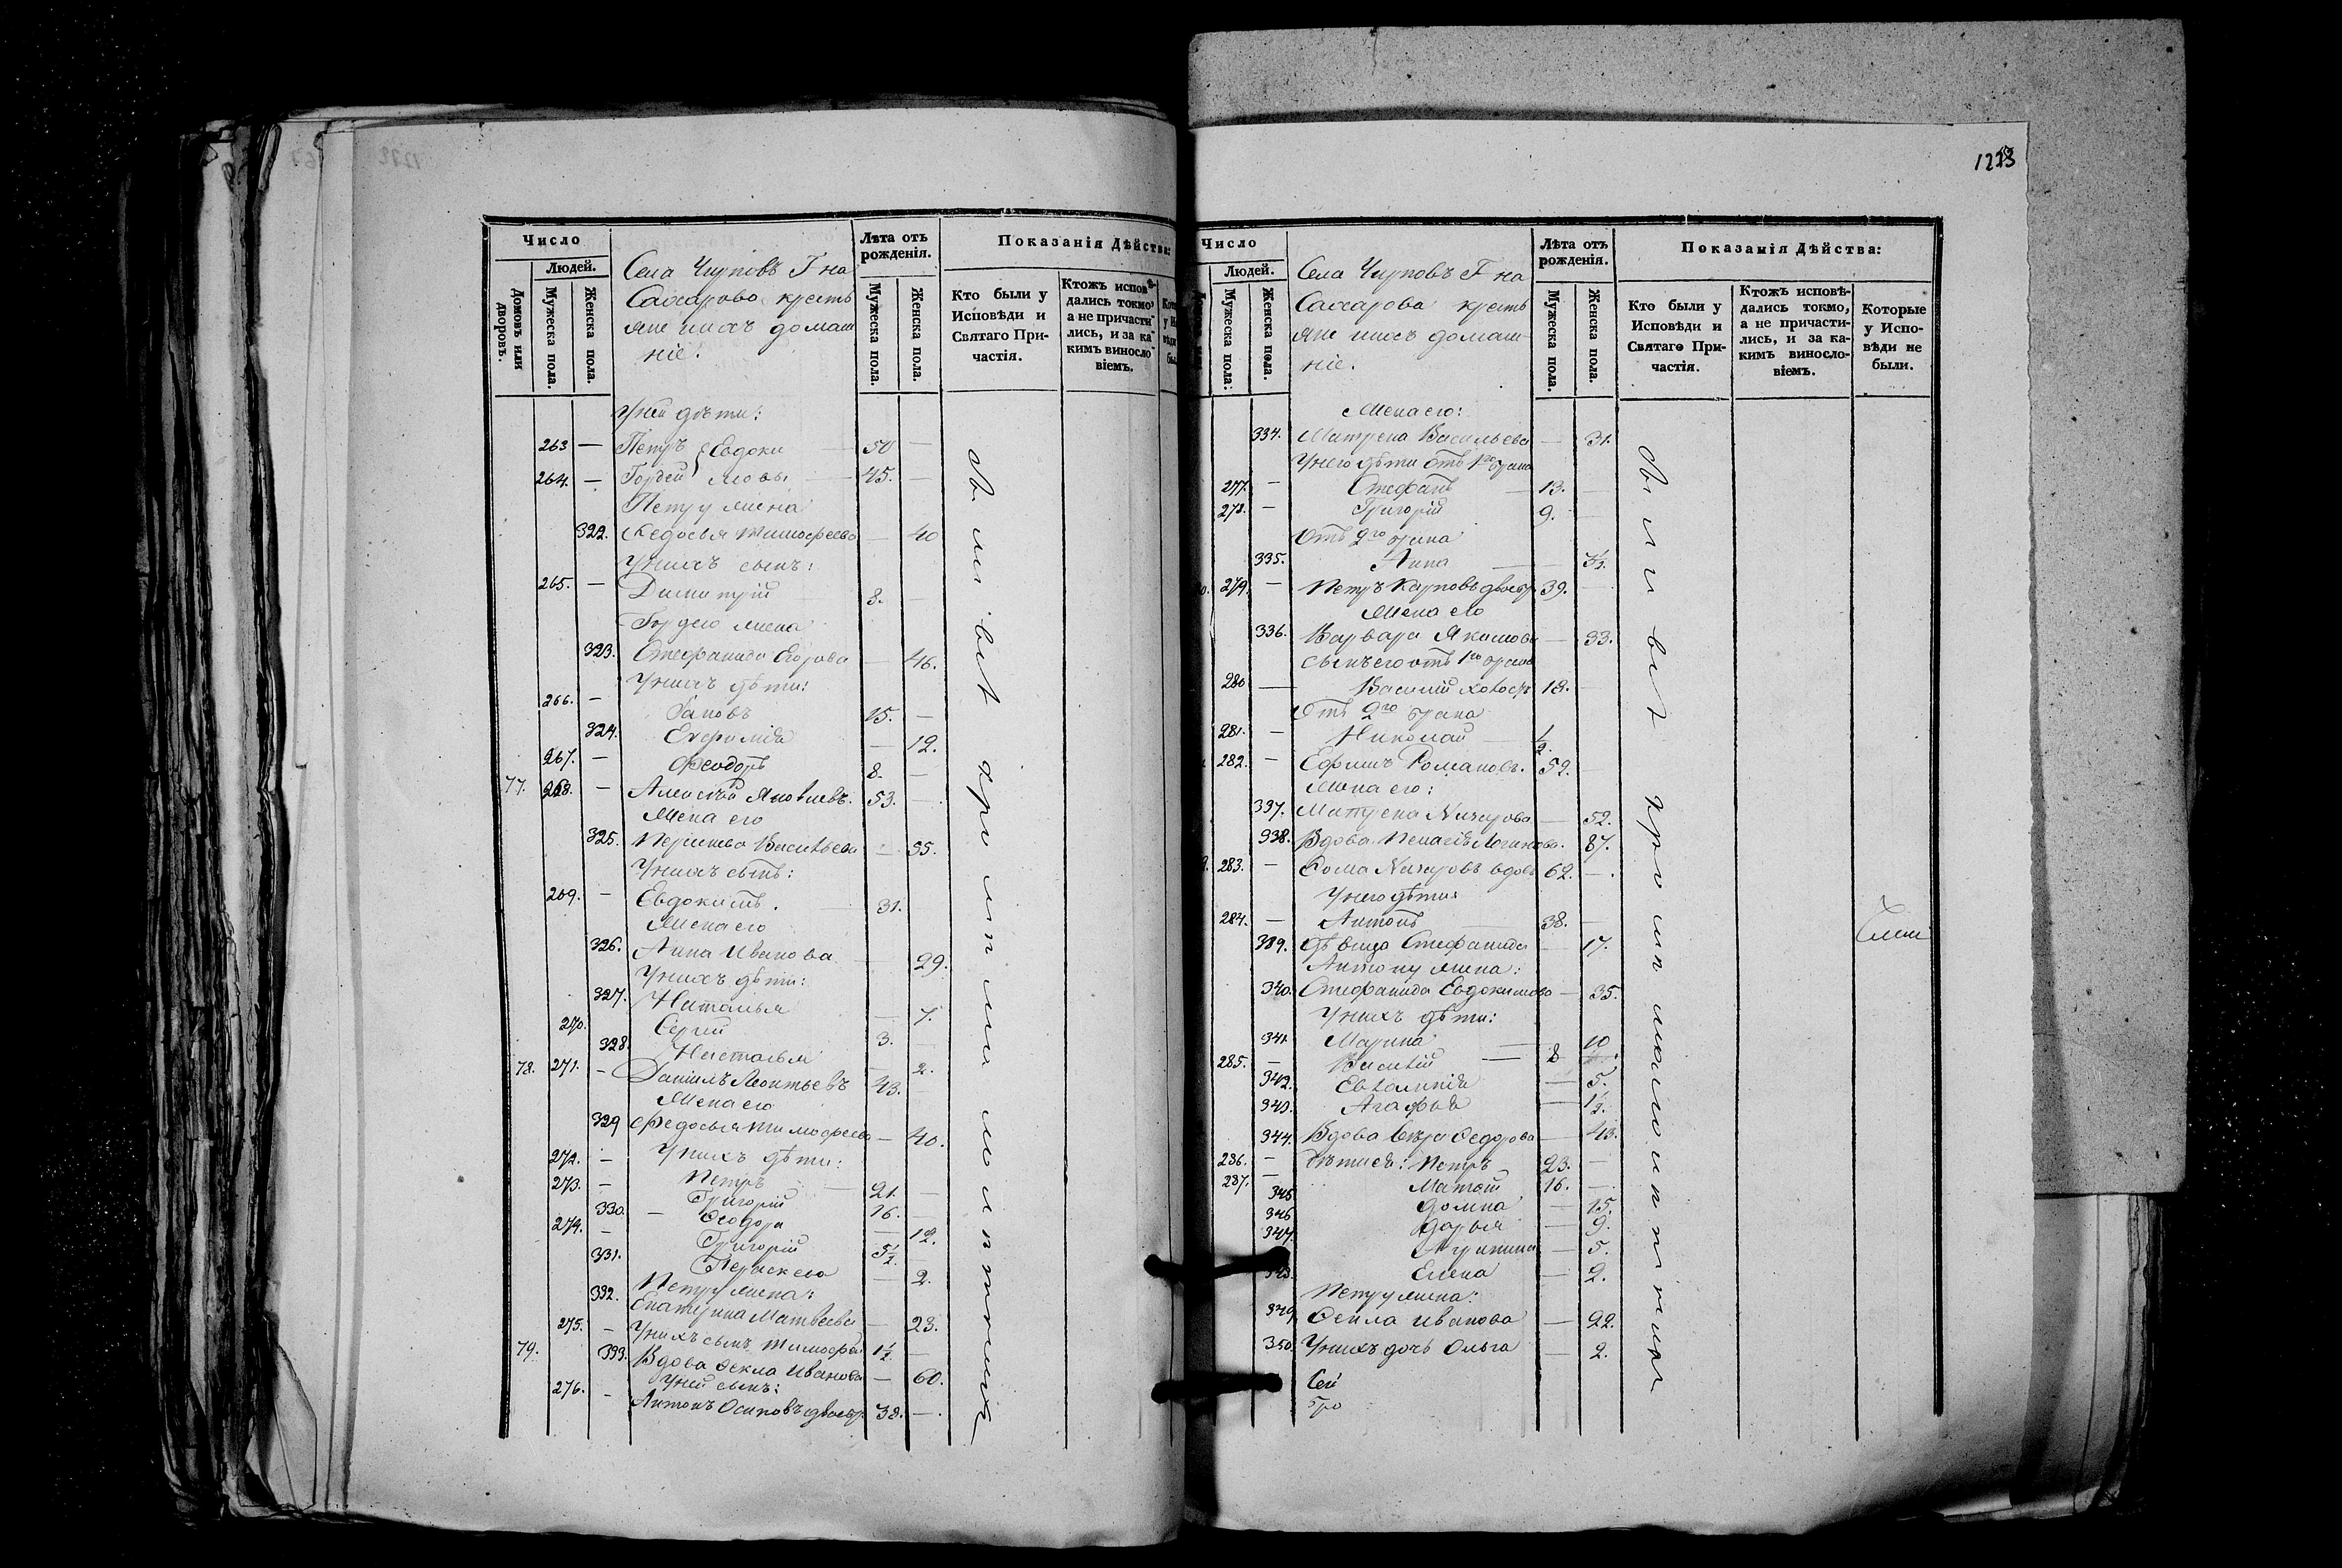 1223
Число
Людей.
Домовъ или дворовъ.
Мужеска пола.
Женска пола.
Села Чирповъ Г на
Сахарова крестья
не ихъ домаш
ніе.
Лѣта отъ рожденія.
Мужеска пола.
Женска пола.
Показанія Дѣйства:
Кто были у Исповѣди и Святаго Причастія.
Ктожъ исповѣдались токмо, а не причастились, и за какимъ винословіемъ.
У ней дѣти:
263 — Петръ Евдоки 50 —
264. — Гордей мовы 45. —
Петру жена
322. Ѳедосья Тимофеева — 40
У нихъ сынъ:
265. — Димитрій 8. —
Гордею жена
323. Стефанида Егорова — 46.
У нихъ дѣти:
266. — 15. —
324. Евфимія — 12.
267. — Ѳеодоръ 8. —
77. 268. — Алексѣй Яковлевъ. 53. —
Жена его
325. Васильева — 55.
У нихъ сынъ:
269. — Евдокимъ. 31.
Жена его
326. Анна Иванова — 29.
У нихъ дѣти:
327. Наталья — 7.
270. Сергій 3. —
328. Настасья — 2.
78. 271. — Даніилъ Леонтьевъ 43.
Жена его
329 Ѳедосья Тимофеева — 40.
У нихъ дѣти:
272. — Петръ 21. —
273. — Григорій 16. —
330. — Ѳеодора — 12.
274. — Григорій 5½
331. Параскева — 2.
Петру жена:
332. Екатерина Матвѣева — 23.
275. — У нихъ сынъ Тимофей 1½ —
79. 333. Вдова Ѳекла Иванова — 60.
У ней сынъ:
276. — Антонъ Осиповъ двоебр. 38. —
Число
Людей.
Мужеска пола.
Женска пола.
Села Чирповъ Г на
Сахарова крестья
не ихъ домаш
ніе.
Лѣта отъ рожденія.
Мужеска пола.
Женска пола.
Показанія Дѣйства:
Кто были у Исповѣди и Святаго Причастія.
Ктожъ исповѣдались токмо, а не причастились, и за какимъ винословіемъ.
Которые у Исповѣди не были.
Жена его:
334. Матрена Васильева — 31.
У него дѣти отъ 1го брака
277. — Стефанъ — 13. —
278. — Григорій 9. —
Отъ 2го брака
335. Анна — 3½.
279. — Петръ Карповъ двоебр. 39. —
Жена его
336. Варвара Якимова — 33.
Сынъ его отъ 1го брака
280 — Василій холост 18. —
Отъ 2го брака
281. — Николай ½.
282. — Ефимъ Романовъ. 52. —
Жена его:
337. Матрена — 52.
338. Вдова Пелагія Логинова. 87.
283. — Ѳома вдовъ 62. —
У него дѣти:
284. — Антонъ 38. —
339. Дѣвица Стефанида — 17.
Антону жена:
340. Стефанида Евдокимова — 35.
У нихъ дѣти:
341. Марина — 10
285. — Василій — 8
342. Евлампія — 5.
343. Агафья — 1½.
344. Вдова Ѳедорова — 43.
286. — Дѣти ея: Петръ 23. —
287. — Матвѣй 16. —
345 Домна — 15.
346 Дарья — 9.
347. Агрипина — 5.
348. Елена — 2.
Петру жена:
349. Ѳекла Иванова — 22.
350. У нихъ дочь Ольга — 2.